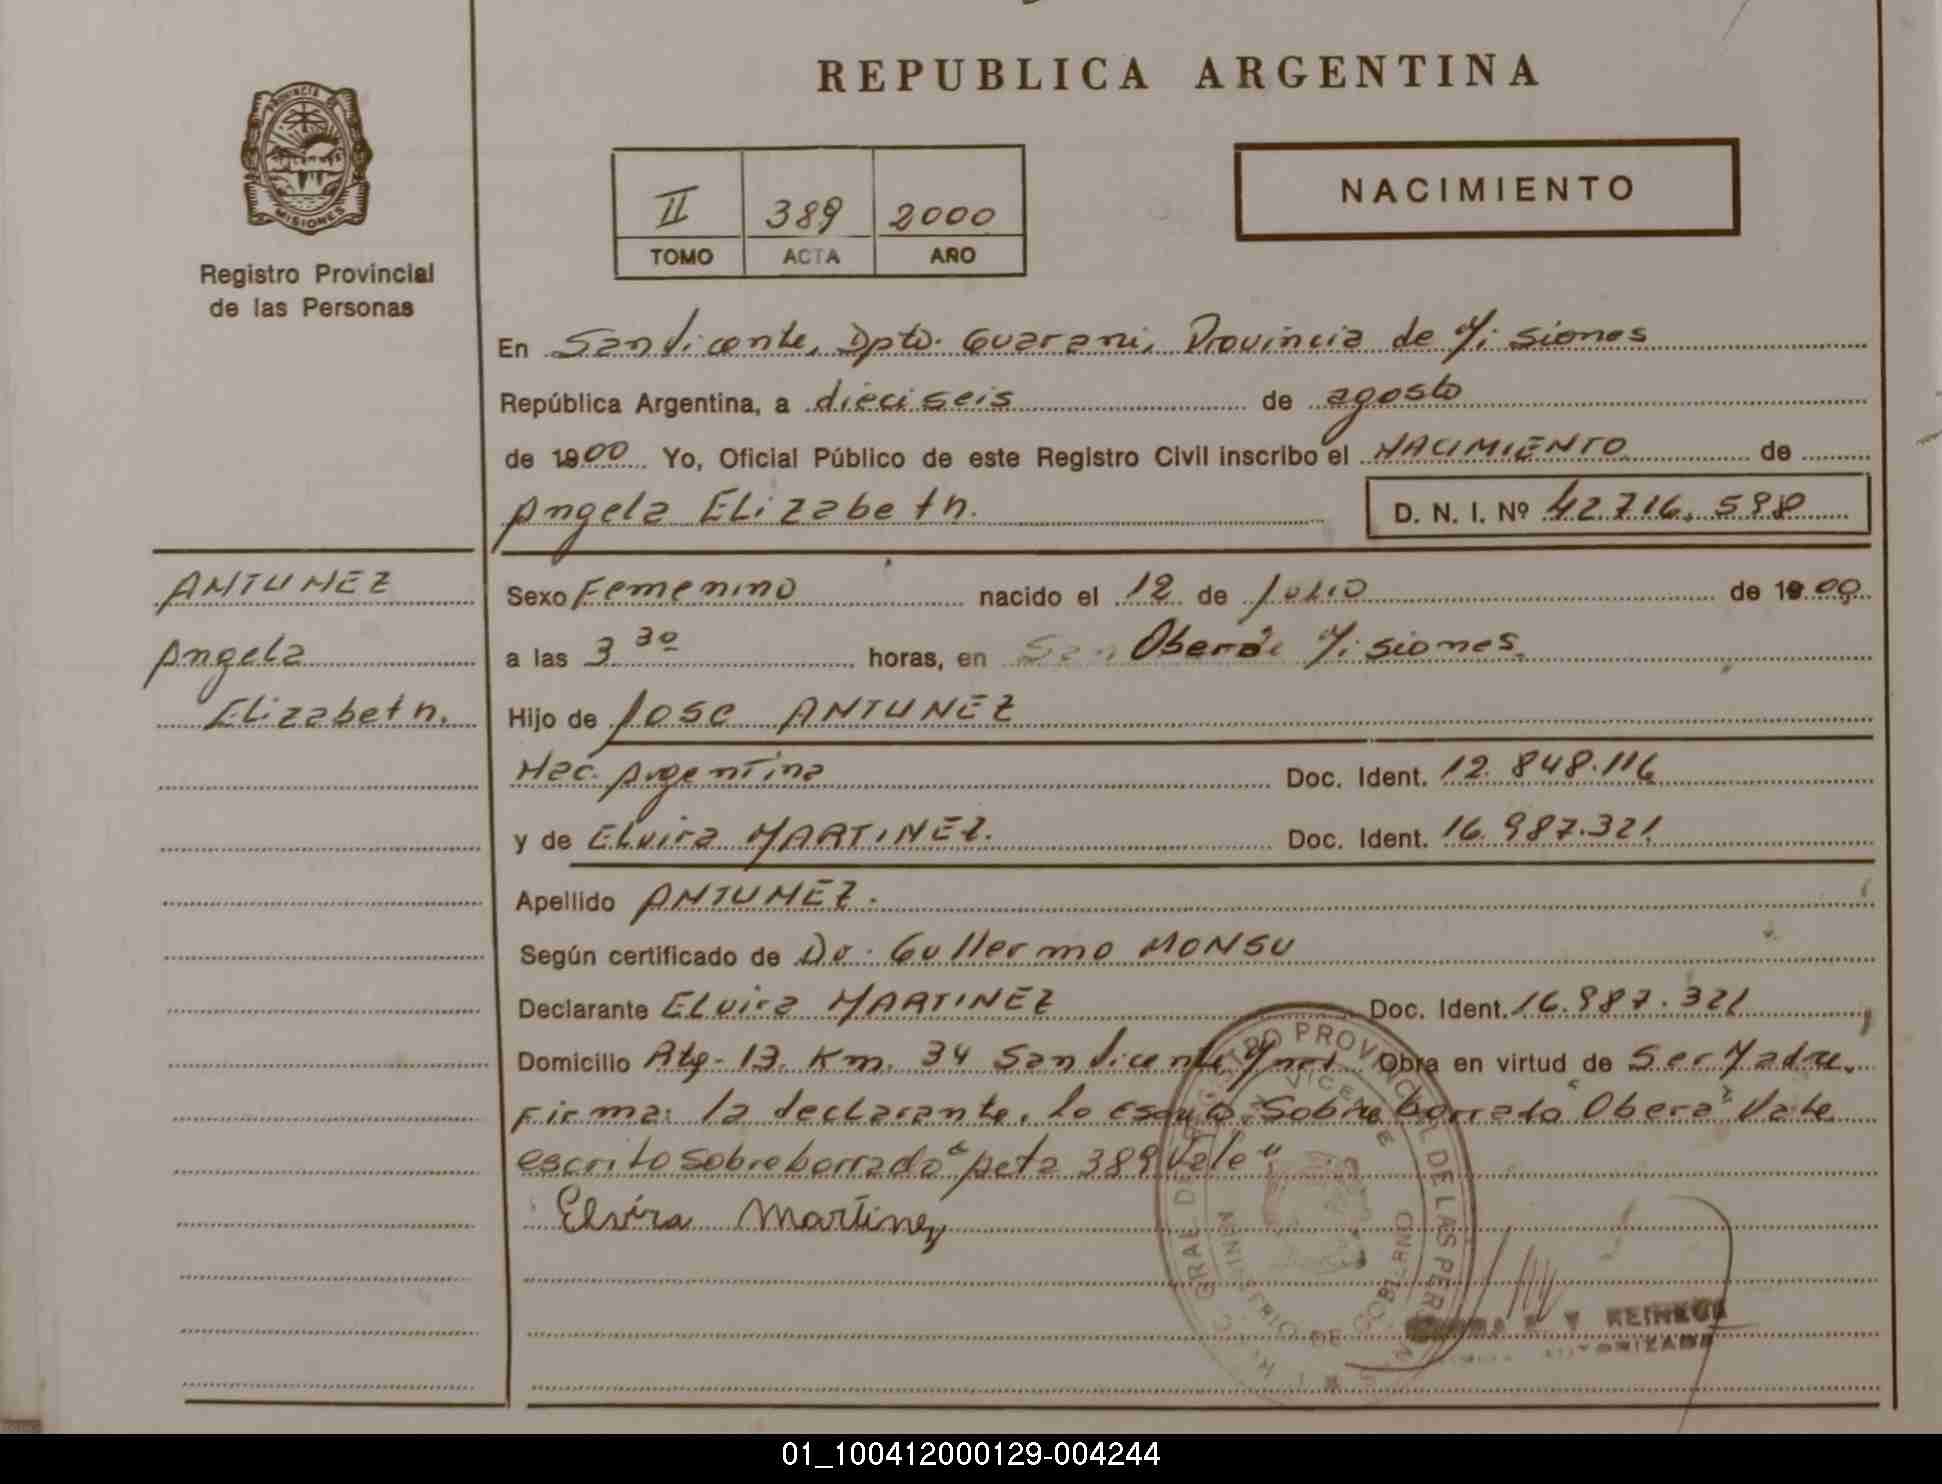 REPUBLICA ARGENTINA
PROVINCIA DE
MISIONES
Registro Provincial
de las Personas
II 389 2000
TOMO ACTA AÑO
NACIMIENTO
En San Vicente, Dpto. Guarani, Provincia de Misiones
República Argentina, a dieciseis de agosto
de 1900 Yo, Oficial Público de este Registro Civil inscribo el NACIMIENTO de
Angela Elizabeth.
D. N. I. Nº 42.716.598
ANTUNEZ
Angela
Elizabeth.
Sexo Femenino nacido el 12 de Julio de 1900
a las 3 30 horas, en San Oberá Misiones.
Hijo de Jose ANTUNEZ
Nac. Argentina Doc. Ident. 12.848.116
y de Elvira MARTINEZ. Doc. Ident. 16.987.321
Apellido ANTUNEZ.
Según certificado de Dr. Gullermo MONSU
Declarante Elvira MARTINEZ Doc. Ident. 16.987.321
Domicilio Km. 34 San Vicente Mnes Obra en virtud de Ser Madre.
Firma: la declarante, lo Sobre borrado "Oberá" Vale
escrito sobre borrado "Acta 389 Vale"
Elvira Martinez
REGISTRO PROVINCIAL DE LAS PERSONAS
SAN VICENTE
MINISTERIO DE GOBIERNO
AUTORIZADA
01_100412000129-004244